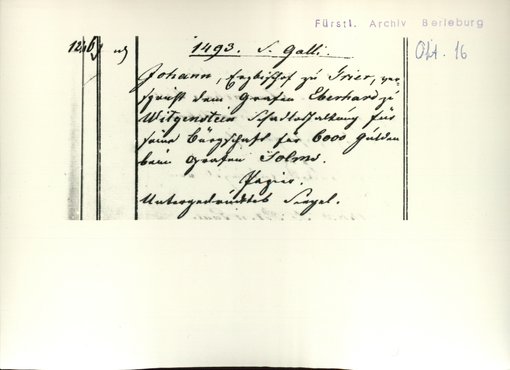 Fürstl. Archiv Berleburg
Okt. 16
1493. S. Galli.
Johann, Erzbischof zu Trier, ver-
spricht dem Grafen Eberhard zu
Witgenstein Schadloshaltung für
seine Bürgschaft für 6000 Gulden
beim Grafen Solms.
Papier.
Untergedrücktes Siegel.